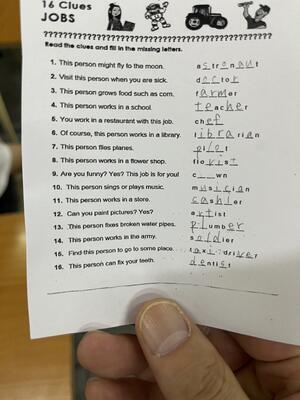 16 Clues
JOBS
????????????????????????????????????????????????
Read the clues and fill in the missing letters.
1. This person might fly to the moon. astronaut
2. Visit this person when you are sick. doctor
3. This person grows food such as corn. farmer
4. This person works in a school. teacher
5. You work in a restaurant with this job. chef
6. Of course, this person works in a library. librarian
7. This person flies planes. pilot
8. This person works in a flower shop. florist
9. Are you funny? Yes? This job is for you! c_ _wn
10. This person sings or plays music. musician
11. This person works in a store. cashier
12. Can you paint pictures? Yes? artist
13. This person fixes broken water pipes. plumber
14. This person works in the army. soldier
15. Find this person to go to some place. taxi driver
16. This person can fix your teeth. dentist